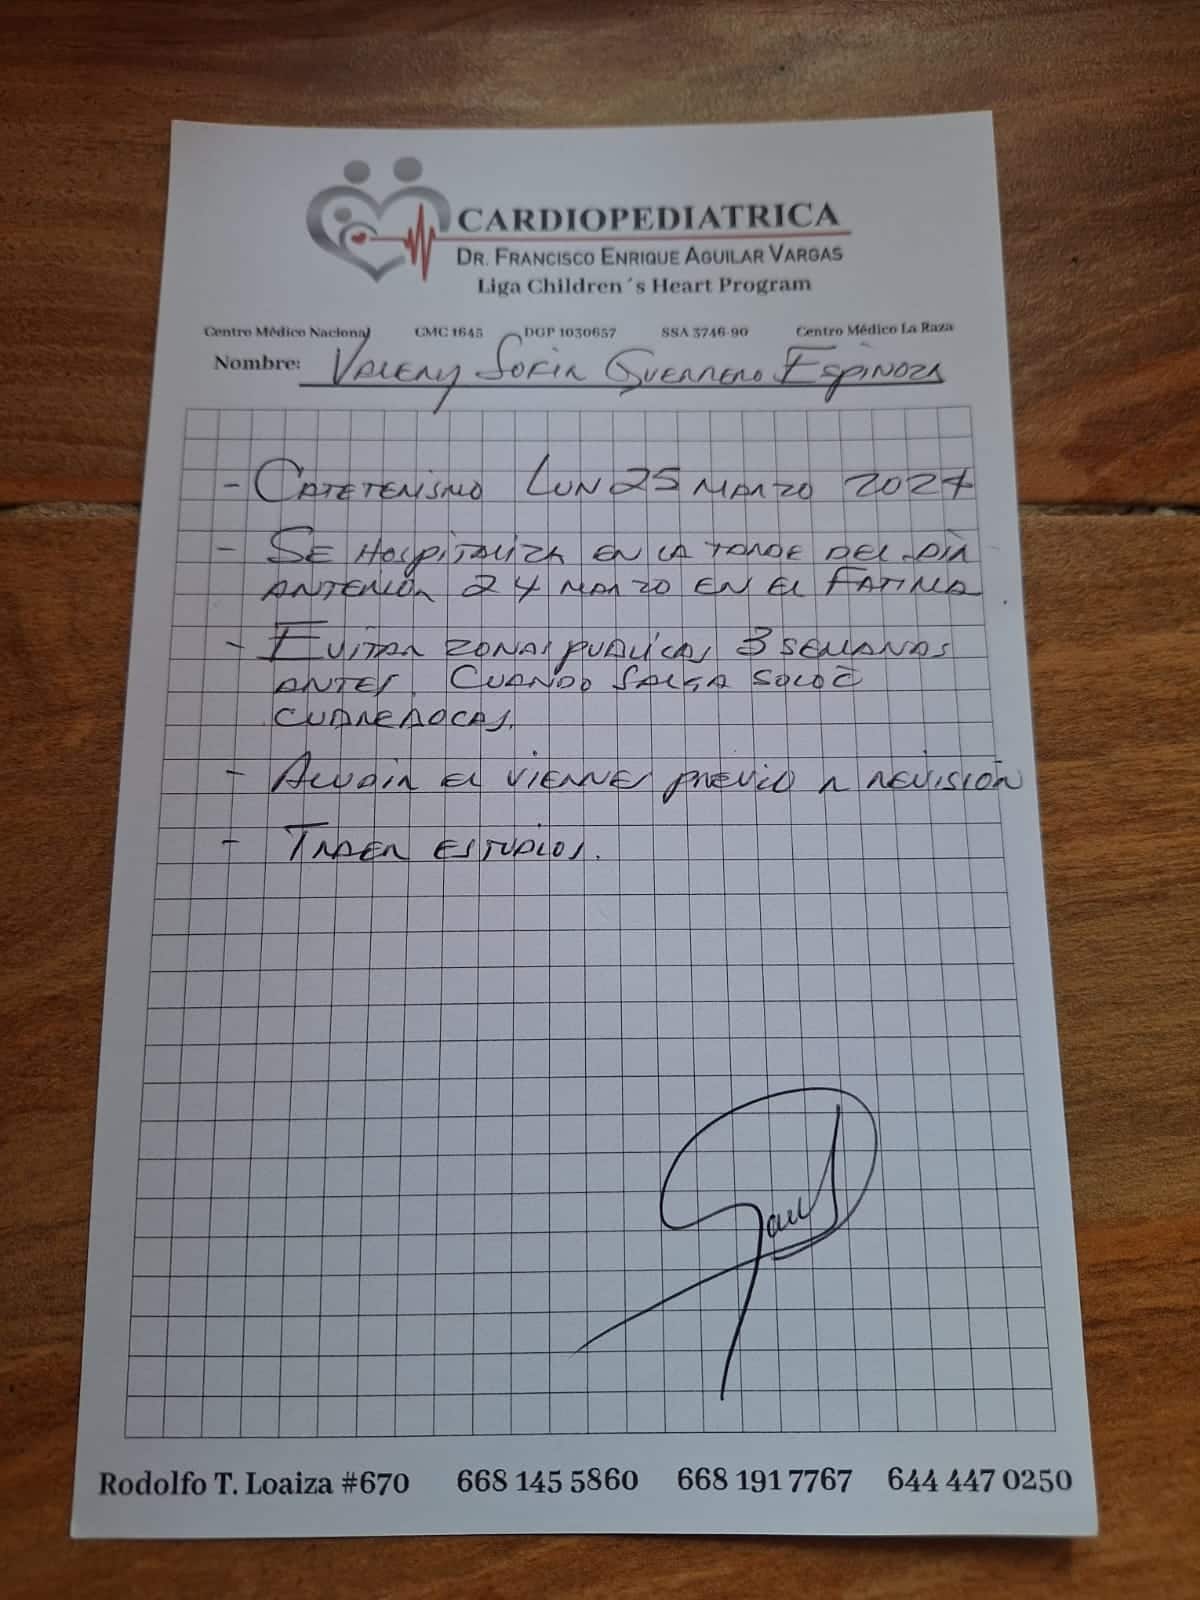 CARDIOPEDIATRICA
DR. FRANCISCO ENRIQUE AGUILAR VARGAS
Liga Children´s Heart Program
Centro Médico Nacional CMC 1645 DGP 1030657 SSA 3746-90 Centro Médico La Raza
Nombre: VALERY SOFIA GUERRERO ESPINOZA
- CATETERISMO LUN 25 MARZO 2024
- SE HOSPITALIZA EN LA TARDE DEL DIA
ANTERIOR 24 MARZO EN EL FATIMA
- EVITAR ZONAS PUBLICAS 3 SEMANAS
ANTES. CUANDO SALGA SOLO C̄
CUBREBOCAS.
- ACUDIR EL VIERNES PREVIO A REVISIÓN
- TRAER ESTUDIOS.
Rodolfo T. Loaiza #670 668 145 5860 668 191 7767 644 447 0250